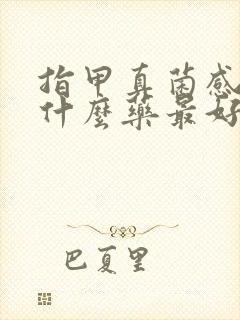 指甲真菌感
什麼藥最好
巴夏里